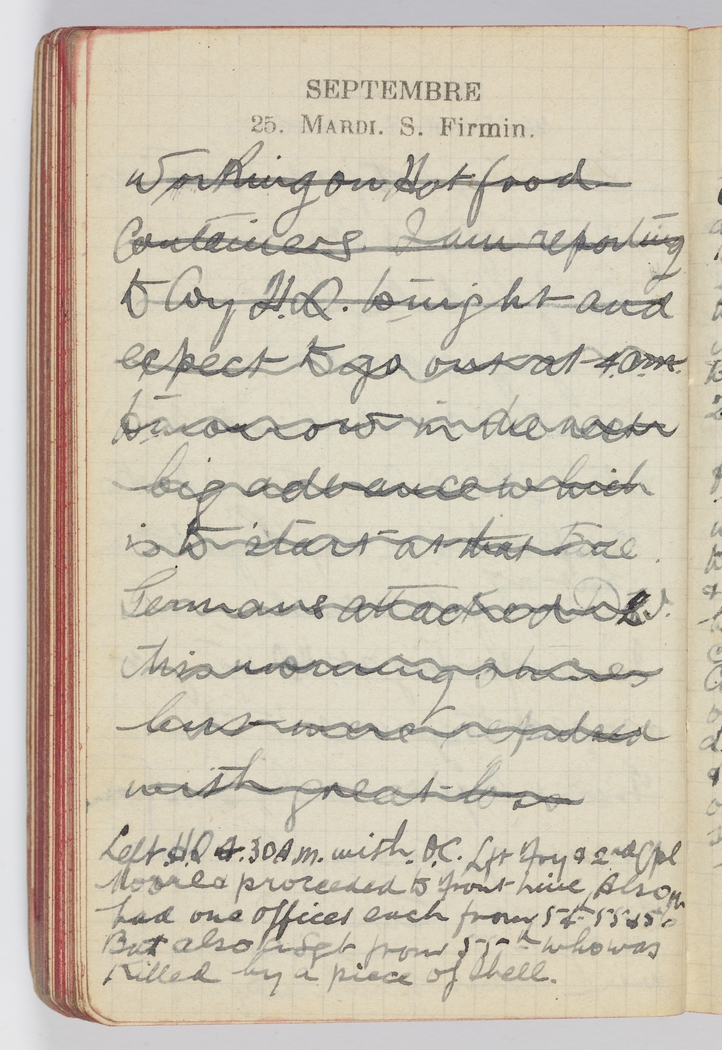 SEPTEMBRE
25. MARDI. S. Firmin.
Working on Hot food
Containers. I am reporting
to Coy H.Q. tonight and
expect to go out at 4 am.
tomorrow in the next
big advance which
is to start at that time
Germans attacked
this morning 3 times
but were repulsed
with great loss
Left H.Q 4.30 A.M. with O.C. Lft Foy & 2nd Cpl
Moore & proceeded to front line Also
had one officer each from 54th 55th
Bat also a Sgt from 55th who was
Killed by a piece of Shell.